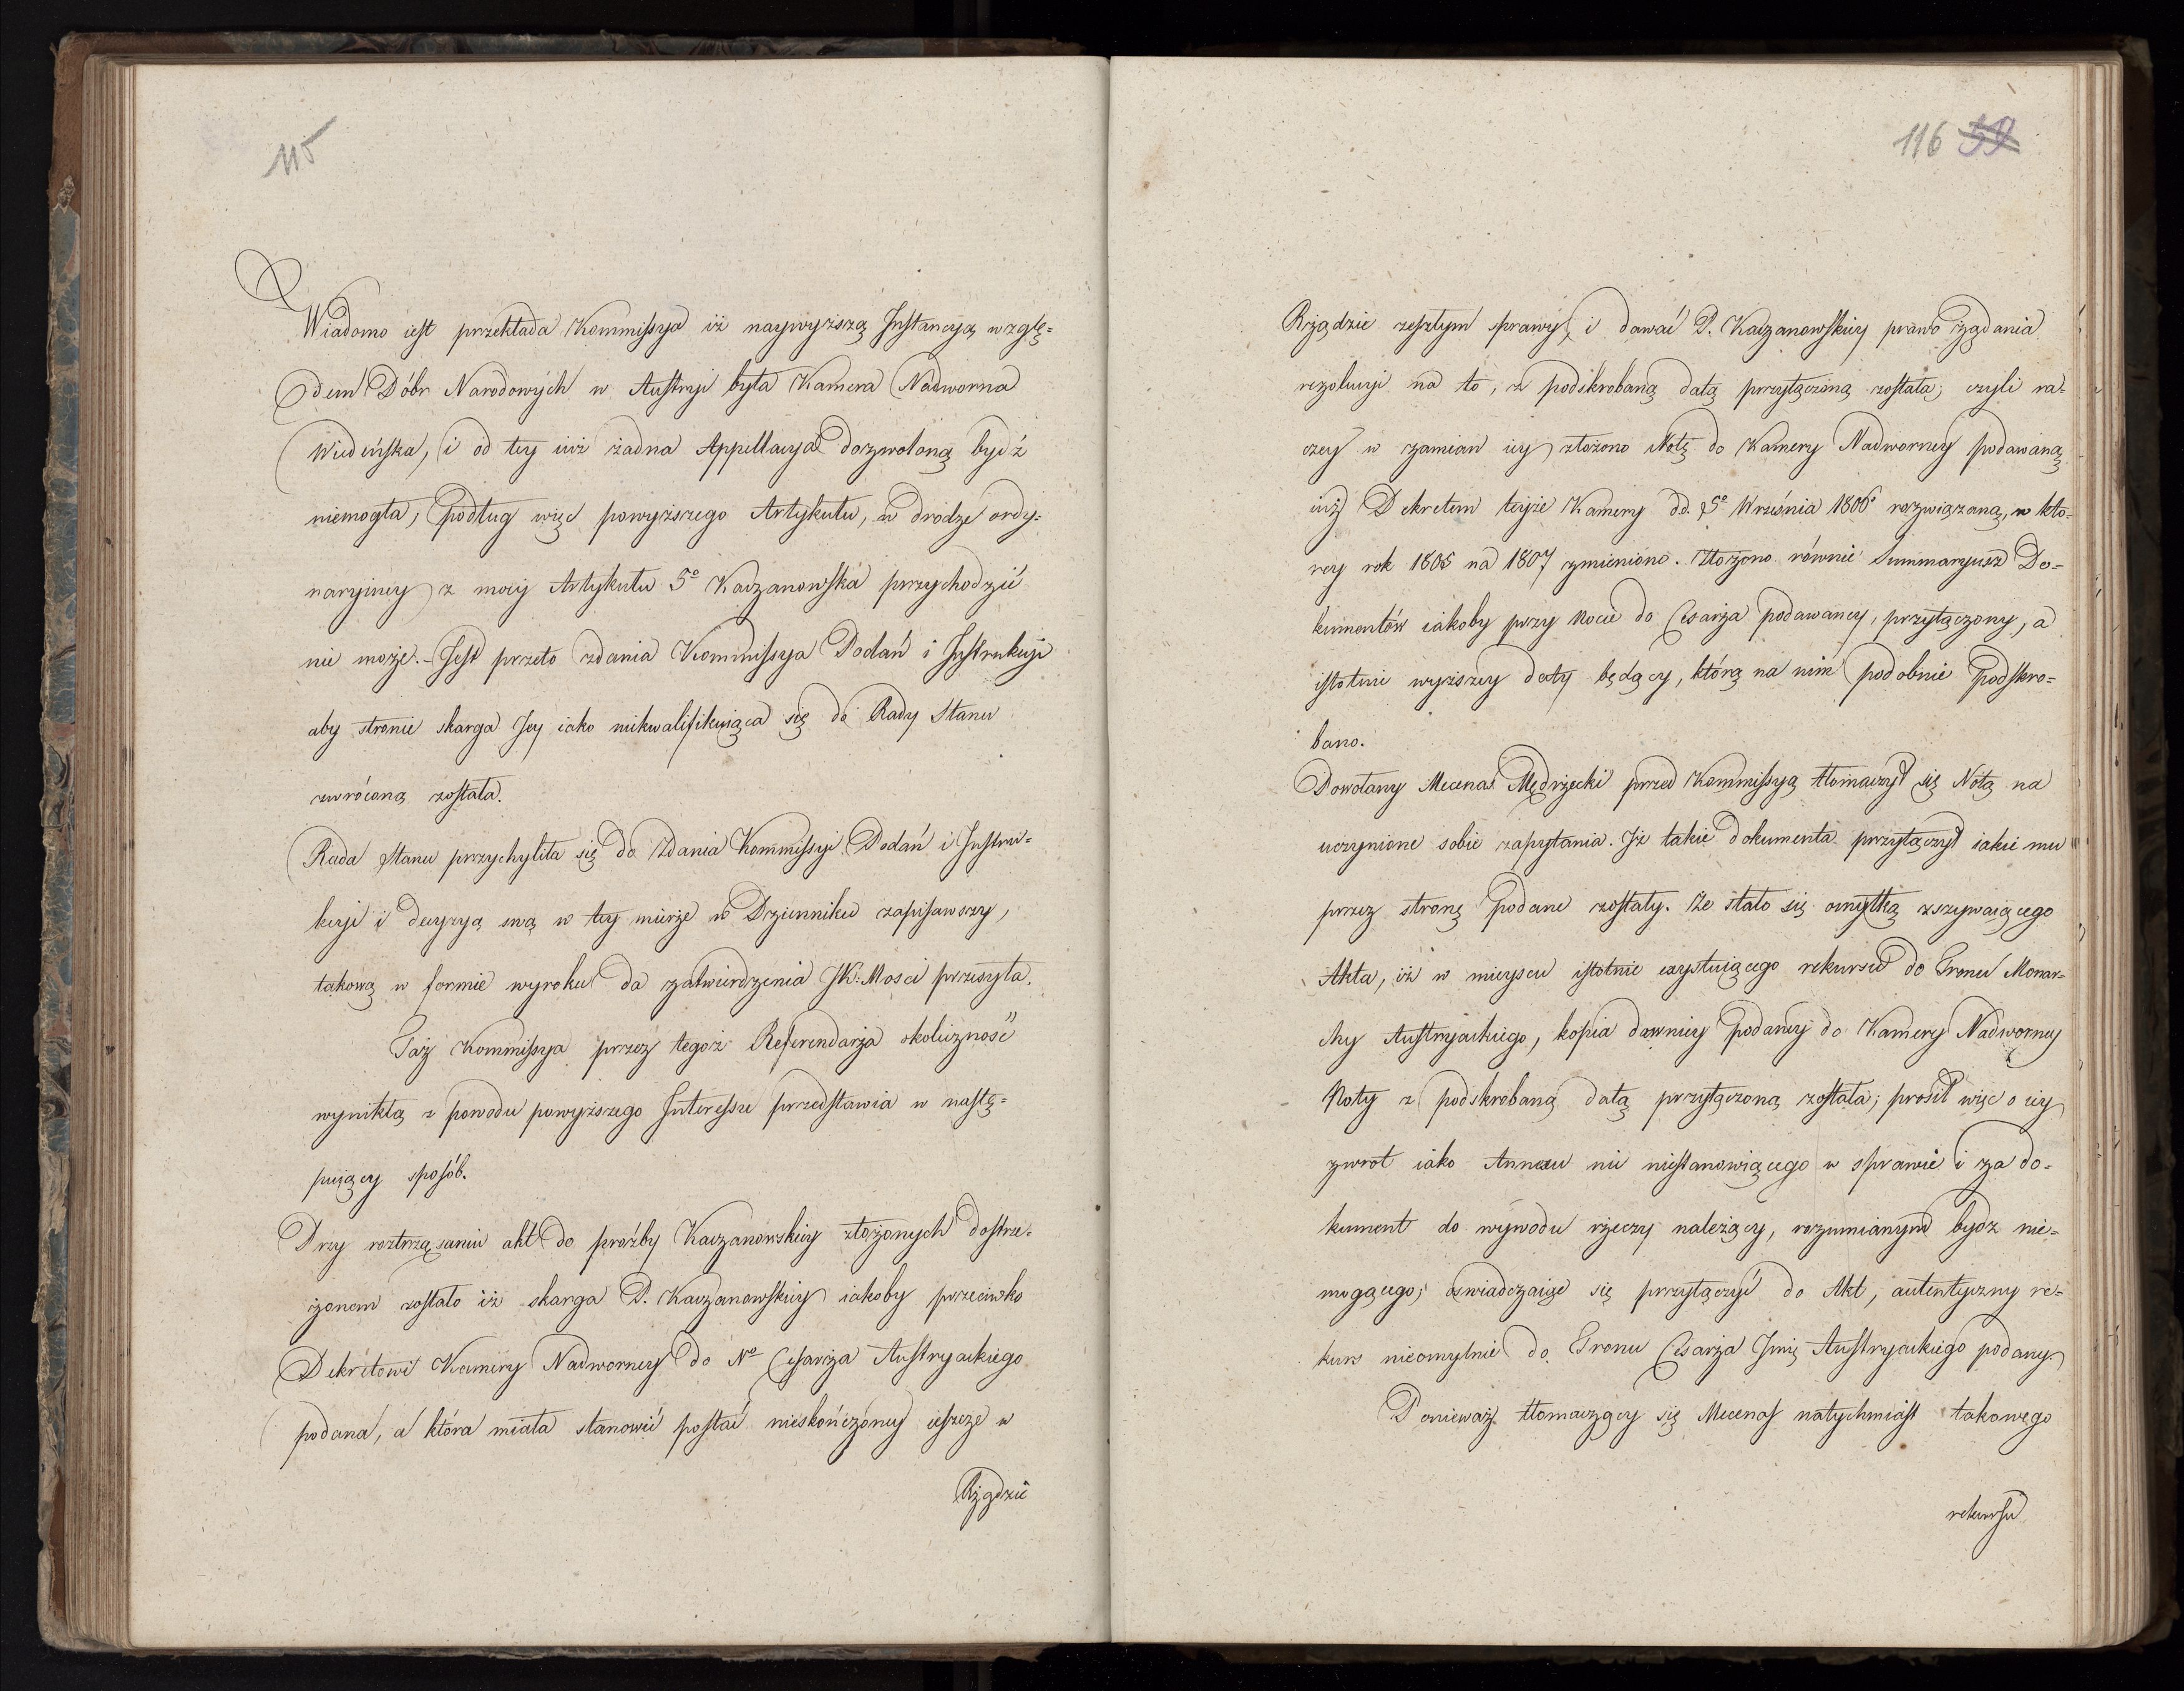 115
Wiadomo iest przekłada Kommissya iż naywyższą Instancyą wzglę-
dem Dóbr Narodowych w Austryi była Kamera Nadworna
Wiedeńska, i od tey iuż żadna Appellacya dozwoloną bydź
niemogła, podług więc powyższego Artykułu, w drodze ordy-
naryiney z mocy Artykułu 5º Kaczanowska przychodzić
nie może. - Jest przeto zdania Kommissya Podań i Instrukcyi
aby stronie skarga Jey iako niekwalifikuiąca się do Rady Stanu
zwróconą została.
Rada Stanu przychyliła się do Zdania Kommissyi Podań i Instru-
kcyi i decyzyą swą w tey mierze w Dzienniku zapisawszy,
takową w formie wyroku do zatwierdzenia JK: Mości przesyła.
Taż Kommissya przez tegoż Referendarza okoliczność
wynikłą z powodu powyższego Interessu przedstawia w nastę-
puiący sposób.
Przy roztrząsaniu akt do prośby Kaczanowskiey złożonych dostrze-
żonem zostało iż skarga P. Kaczanowskiey iakoby przeciwko
Dekretowi Kamery Nadworney do Nº Cesarza Austryackiego
podana, a która miała stanowić postać nieskończoney ieszcze w
Rządzie
116 59
Rządzie zeszłym sprawy, i dawać P. Kaczanowskiey prawo żądania
rezolucyi na to, z podskrobaną datą przyłączoną została; czyli ra-
czey w zamian iey złożono Notę do Kamery Nadworney podawaną
iuż Dekretem teyże Kamery dd. 25º Września 1806º rozwiązaną, w któ-
rey rok 1805 na 1807 zmieniono. Złożono równie Summaryusz Do-
kumentów iakoby przy Nocie do Cesarza podawaney, przyłączony, a
istotnie wyższey daty będący, którą na nim podobnie podskro-
bano.
Powołany Mecenas Mędrzecki przed Kommissyą tłomaczył się Notą na
uczynione sobie zapytania. Iż takie dokumenta przyłączył iakie mu
przez stronę podane zostały. Że stało się omyłką zszywaiącego
Akta, iż w mieyscu istotnie exystuiącego rekursu do Tronu Monar-
chy Austryackiego, kopia dawniey podaney do Kamery Nadworney
Noty z podskrobaną datą przyłączoną została; prosił więc o iey
zwrot iako Annexu nic niestanowiącego w sprawie i za do-
kument do wywodu rzeczy należący, rozumianym bydz nie-
mogącego; oświadczaiąc się przyłączyć do Akt, autentyczny re-
kurs nieomylnie do Tronu Cesarza Jmię Austryackiego podany.
Ponieważ tłomaczący się Mecenas natychmiast takowego
rekursu